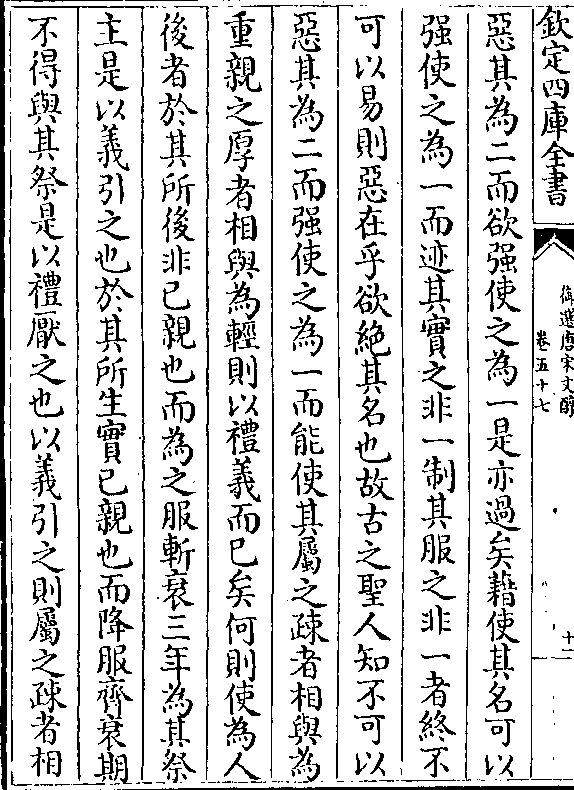 欽定四庫全書
御選唐宋文醇
卷五十七
十二
惡其為二而欲强使之為一是亦過矣藉使其名可以
强使之為一而迹其實之非一制其服之非一者終不
可以易則惡在乎欲絶其名也故古之聖人知不可以
惡其為二而强使之為一而能使其屬之疎者相與為
重親之厚者相與為輕則以禮義而已矣何則使為人
後者於其所後非已親也而為之服斬衰三年為其祭
主是以義引之也於其所生實已親也而降服齊衰期
不得與其祭是以禮厭之也以義引之則屬之疎者相